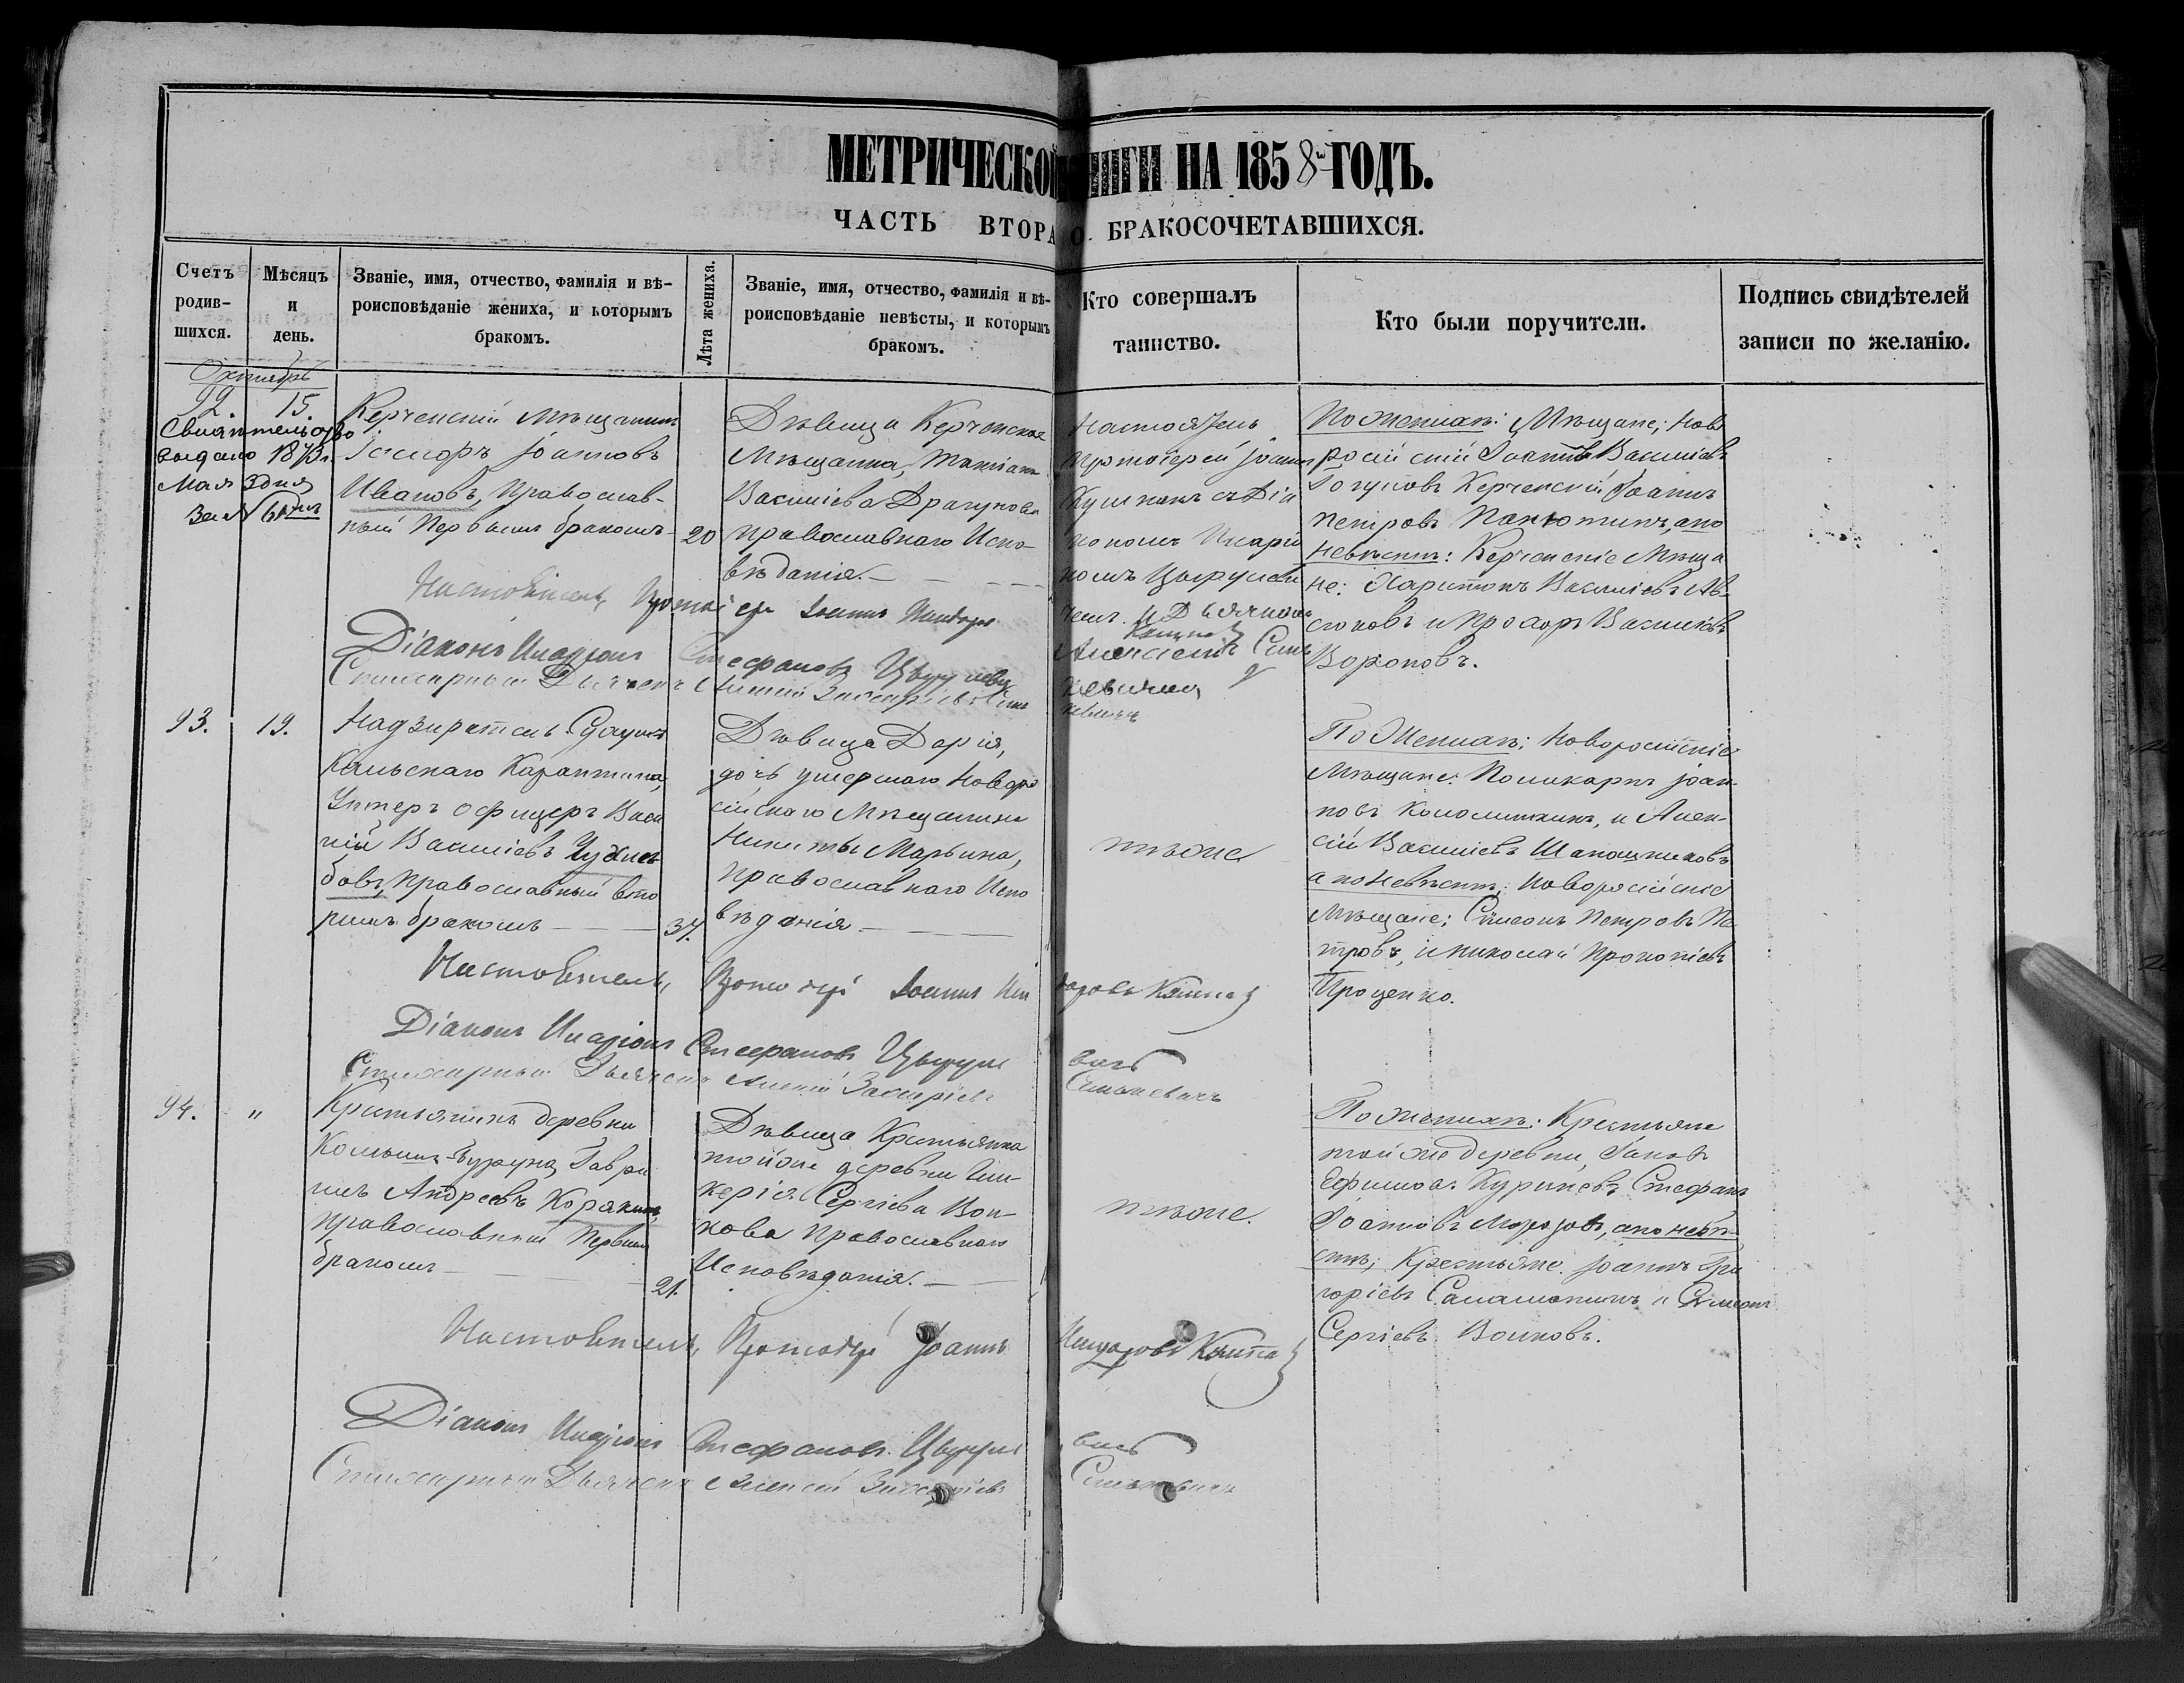 МЕТРИЧЕСКОЙ КНИГИ НА 1858й ГОДЪ.
ЧАСТЬ ВТОРАЯ О БРАКОСОЧЕТАВШИХСЯ.
Счетъ
родив-
шихся.
Мѣсяцъ
и
день.
Званіе, имя, отчество, фамилія и вѣ-
роисповѣданіе жениха, и которымъ
бракомъ.
Лѣта жениха.
Званіе, имя, отчество, фамилія и вѣ-
роисповѣданіе невѣсты, и которымъ
бракомъ.
Кто совершалъ
таинство.
Кто были поручители.
Подпись свидѣтелей
записи по желанію.
Октябрь
92. 15.
Свидѣтельство
выдано 1873 г.
Мая 3 дня
за №
Керченскій Мѣщанинъ
Іоанновъ
Ивановъ, Православ-
ный Первымъ бракомъ
20
Дѣвица Керченская
Мѣщанка, Татіана
Василіева Драгунова
православнаго Испо-
вѣданія.
Настоятель
Протоіерей Іоаннъ
съ Діа
кономъ Иларіо
номъ
и Дьячкомъ
По женихѣ: Мѣщане; Ново
россійскій Іоаннъ Василіевъ
Керченскій Іоаннъ
Петровъ а по
невѣстѣ: Керченскіе Мѣща
не: Харитонъ Василіевъ
и Прохоръ Василіевъ
Вороновъ.
Настоятель, Протоіерей Іоаннъ
Діаконъ Иларіонъ Стефановъ
Стихарный Дьячекъ Алексій Захаріевъ
93. 19.
Надзиратель
Карантина,
Унтеръ офицеръ Васи
лій Василіевъ
Православный вто
рымъ бракомъ
34.
Дѣвица Дарія,
дочь умершаго Новоро
сійскаго Мѣщанина
Никиты Марьина,
Православнаго Испо
вѣданія
тѣже
По Женихѣ: Новоросійскіе
Мѣщане: Поликарпъ Іоан-
новъ и Алек-
сій Василіевъ Шапошниковъ
а по Невѣстѣ: Новоросійскіе
Мѣщане: Симеонъ Петровъ Пе
тровъ, и Николай Прокопіевъ
Проценко.
Настоятель, Протоіерей Іоаннъ
Діаконъ Иларіонъ Стефановъ
Стихарный Дьячекъ Алексій Захаріевъ
94. "
Крестьянинъ деревни
Гаври
илъ Андреевъ Корякинъ,
православный Первымъ
бракомъ
21.
Дѣвица Крестьянка
тойже деревни Гли-
керія Сергіева Вол-
кова Православнаго
Исповѣданія.
тѣже.
По женихѣ: Крестьяне
той же деревни, Іаковъ
Ефимовъ Стефанъ
Іоанновъ Морозовъ, а по невѣ-
стѣ; Крестьяне Іоаннъ Гри
горіевъ и Симеонъ
Сергіевъ Волковъ.
Настоятель, Протоіерей Іоаннъ
Діаконъ Иларіонъ Стефановъ
Стихарный Дьячекъ Алексій Захаріевъ